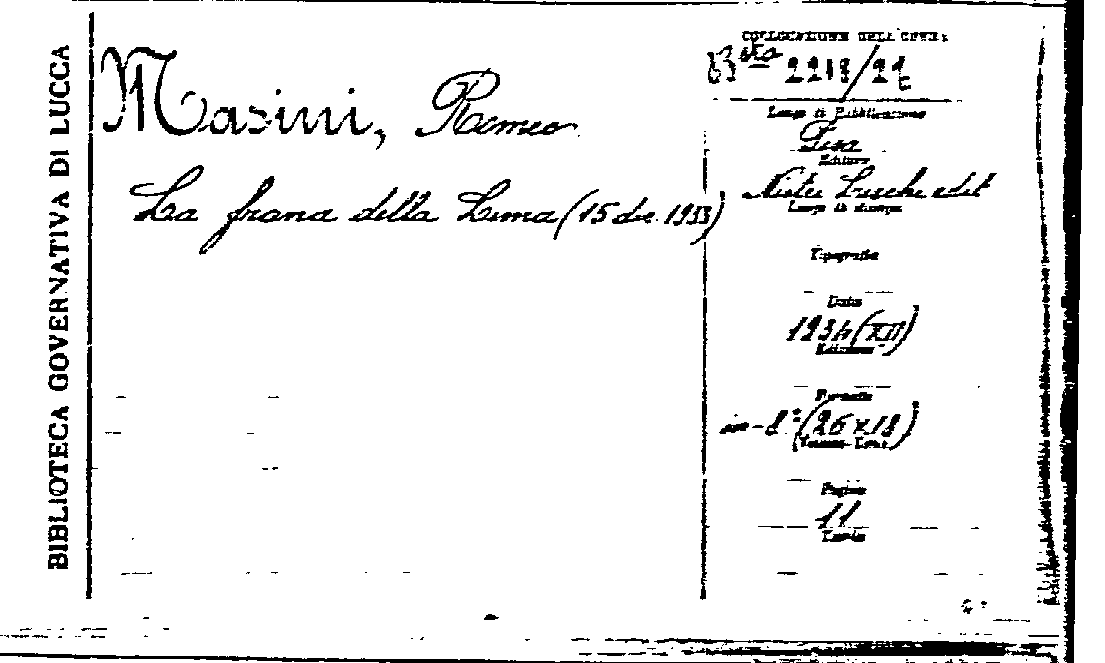 BIBLIOTECA GOVERNATIVA DI LUCCA
Masini, Romeo
La frana della Lima (15 dic. 1933)
COLLOCAZIONE DELL'OPERA
B.ta 2218/21
Luogo di Pubblicazione
Pisa
Editore
Nistri Lischi edit
Luogo di stampa
Tipografia
Data
1934 (XII)
Edizione
Formato
in-8° (26 x 18)
Pagine
11